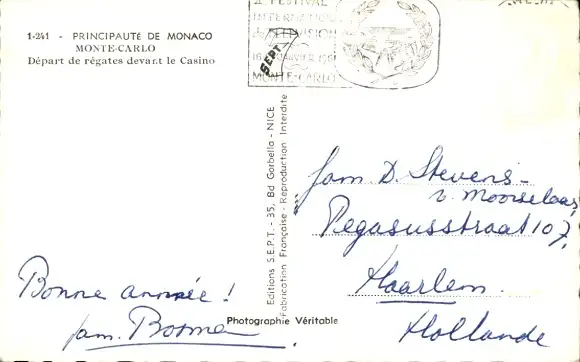 1-241 - PRINCIPAUTE DE MONACO
MONTE-CARLO
Départ de régates devant le Casino
II FESTIVAL
INTERNATIONAL
de TELEVISION
MONTE-CARLO
SEPT
Editions S.E.P.T. - 35, Bd Garbella - NICE
Fabrication Française - Reproduction Interdite
Photographie Véritable
Bonne année!
fam. Bosma
fam D. Stevens-
v. Moorselaar
Pegasusstraat 107,
Haarlem
Hollande